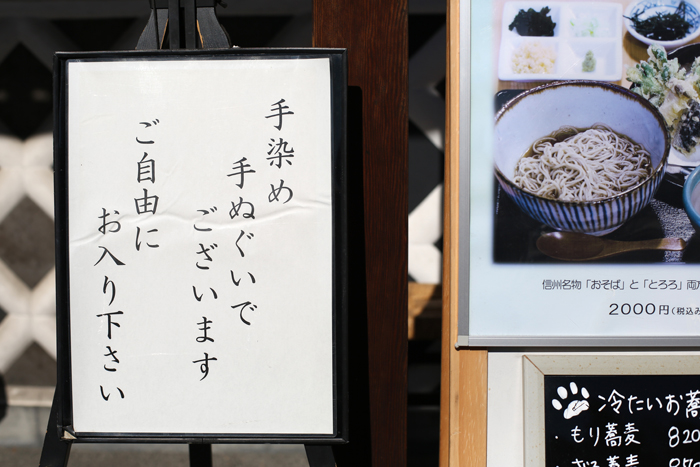 手染め
手ぬぐいで
ございます
ご自由に
お入り下さい
信州名物「おそば」と「とろろ」両
2000円(税込み
冷たいお蕎
・もり蕎麦 820